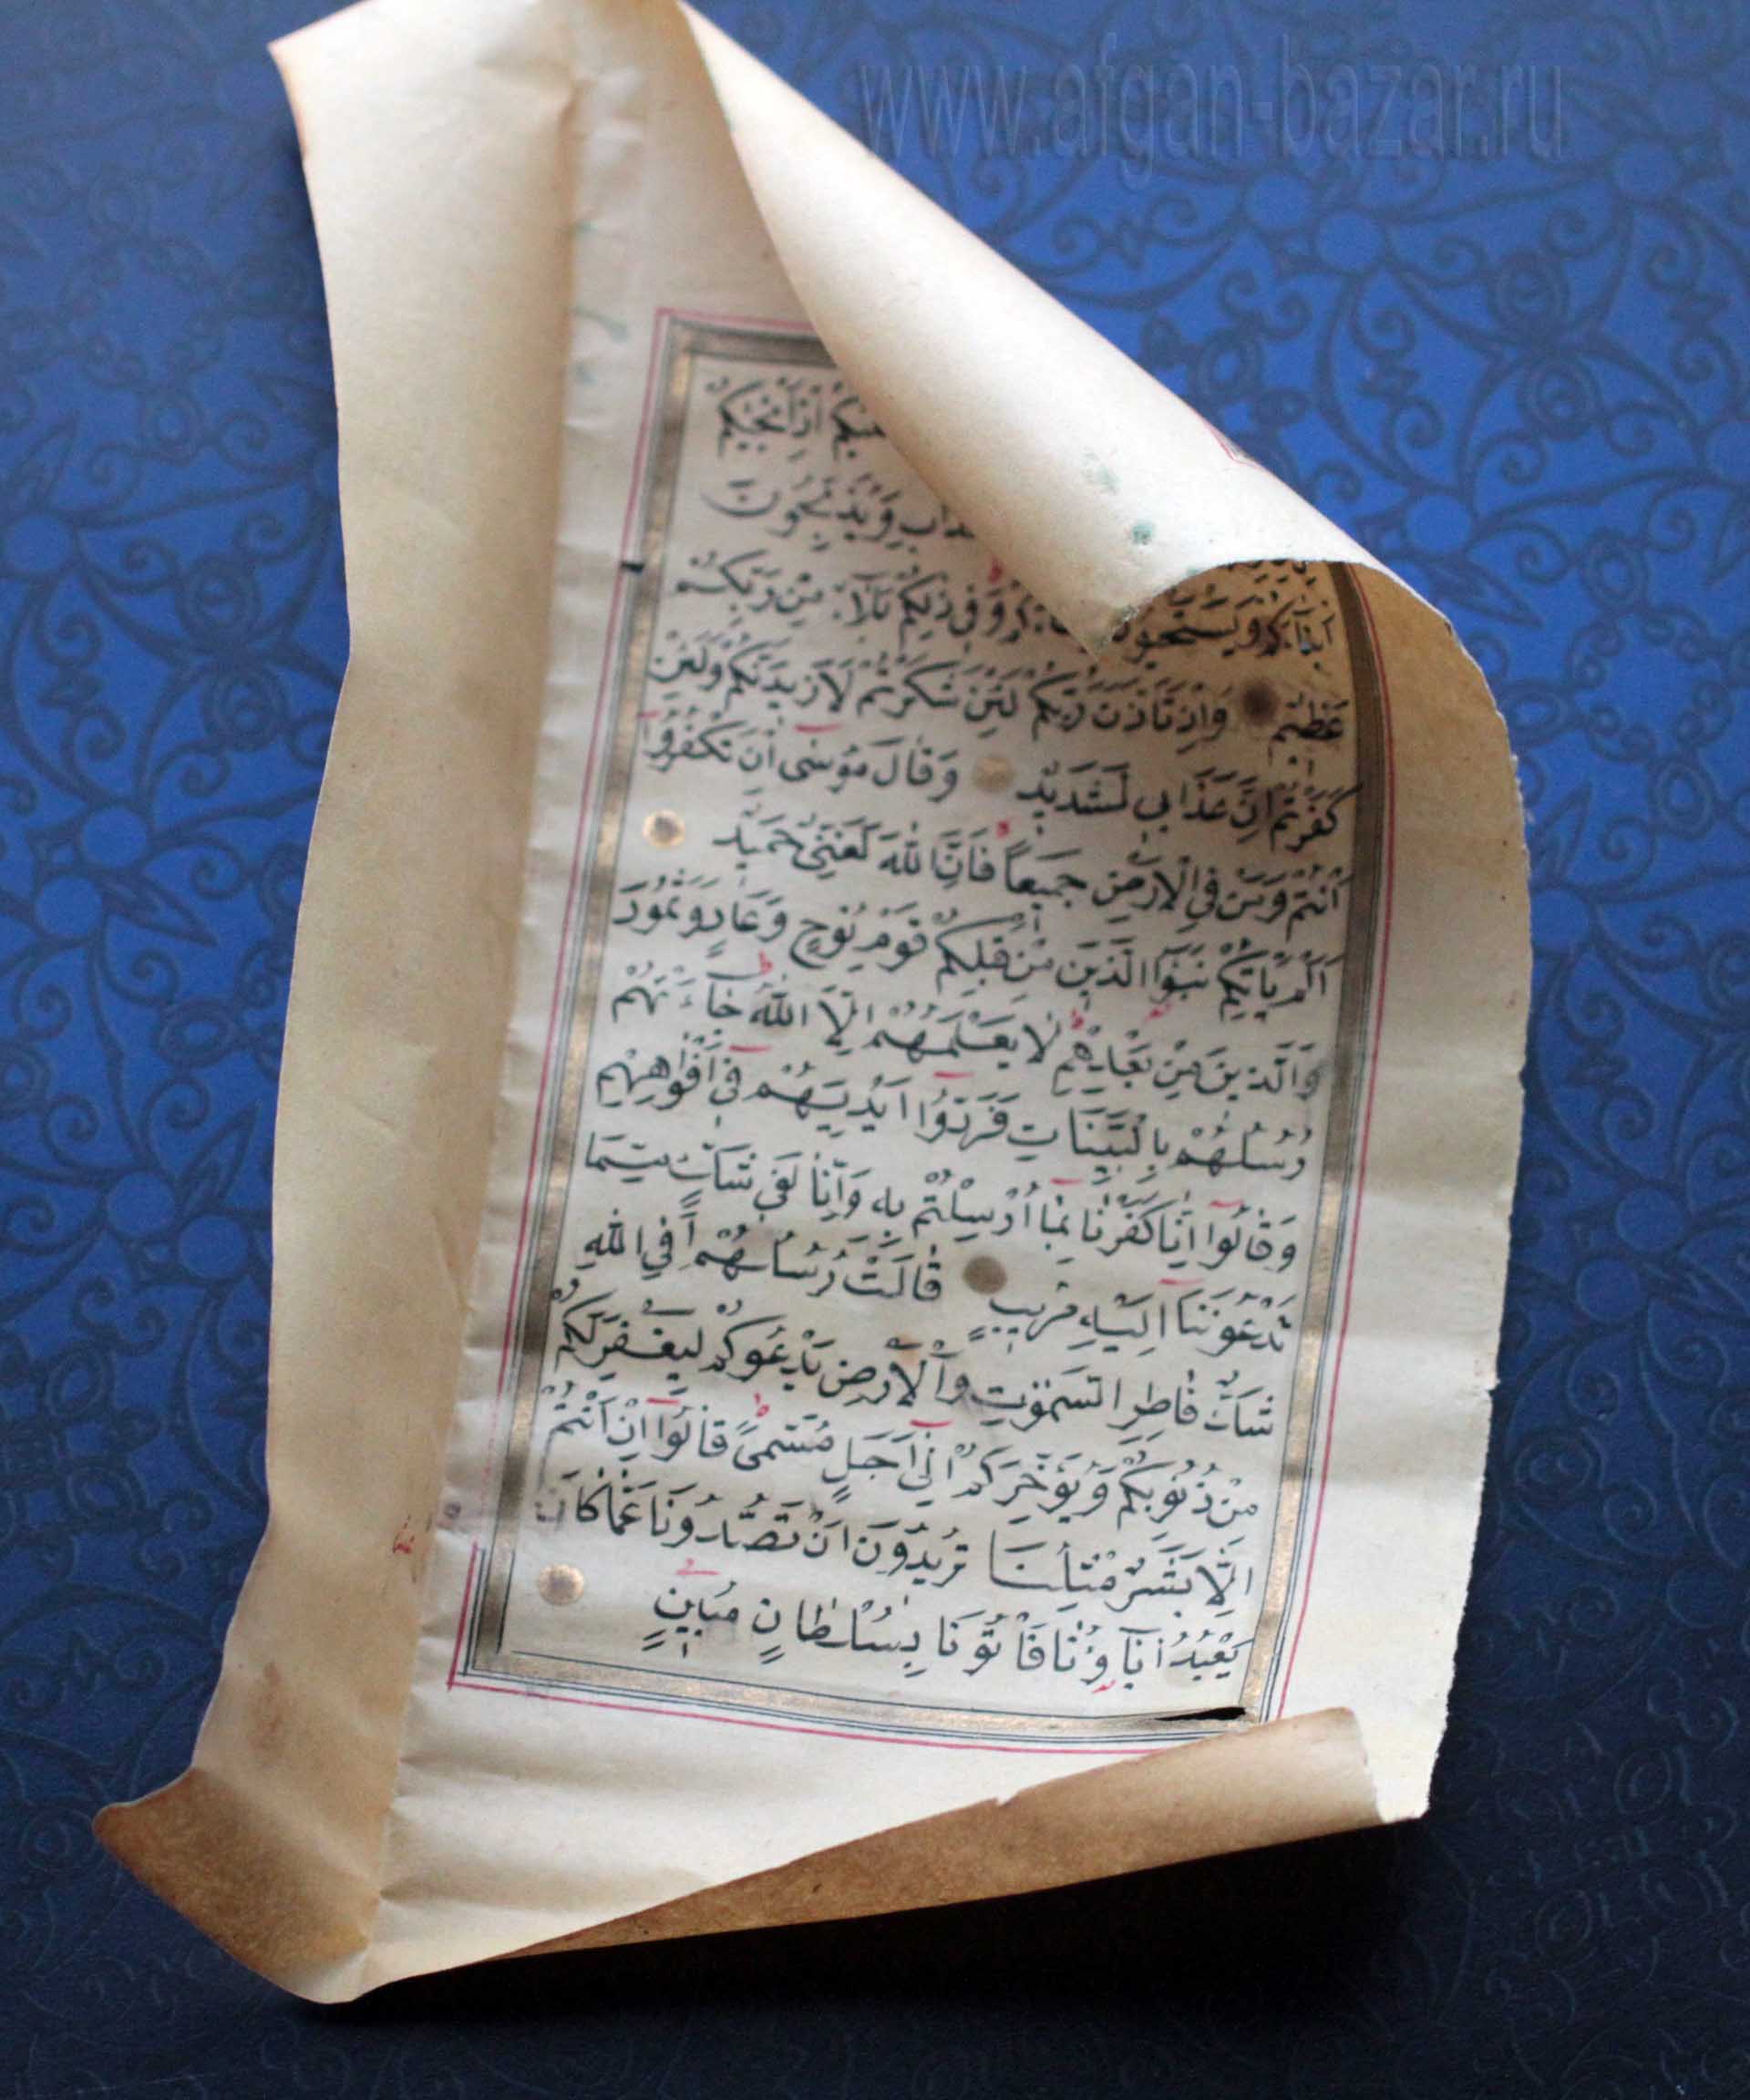 www.afgan-bazar.ru
عَلَيْكُمْ اِذْ اَنْجٰيكُمْ
الْعَذَابِ وَيُذَبِّحُونَ
اَبْنَآءَكُمْ وَيَسْتَحْيُونَ نِسَآءَكُمْ وَفِى ذٰلِكُمْ بَلَآءٌ مِنْ رَبِّكُمْ
عَظِيمٌ وَاِذْ تَاَذَّنَ رَبُّكُمْ لَئِنْ شَكَرْتُمْ لَاَزِيدَنَّكُمْ وَلَئِنْ
كَفَرْتُمْ اِنَّ عَذَابِى لَشَدِيدٌ وَقَالَ مُوسٰٓى اِنْ تَكْفُرُٓوا
اَنْتُمْ وَمَنْ فِى الْاَرْضِ جَمِيعًا فَاِنَّ اللّٰهَ لَغَنِىٌّ حَمِيدٌ
اَلَمْ يَاْتِكُمْ نَبَؤُا الَّذِينَ مِنْ قَبْلِكُمْ قَوْمِ نُوحٍ وَعَادٍ وَثَمُودَ
وَالَّذِينَ مِنْ بَعْدِهِمْ لَا يَعْلَمُهُمْ اِلَّا اللّٰهُ جَآءَتْهُمْ
رُسُلُهُمْ بِالْبَيِّنَاتِ فَرَدُّٓوا اَيْدِيَهُمْ فِٓى اَفْوَاهِهِمْ
وَقَالُٓوا اِنَّا كَفَرْنَا بِمَٓا اُرْسِلْتُمْ بِهِ وَاِنَّا لَفِى شَكٍّ مِمَّا
تَدْعُونَنَٓا اِلَيْهِ مُرِيبٍ قَالَتْ رُسُلُهُمْ اَفِى اللّٰهِ
شَكٌّ فَاطِرِ السَّمٰوٰتِ وَالْاَرْضِ يَدْعُوكُمْ لِيَغْفِرَ لَكُمْ
مِنْ ذُنُوبِكُمْ وَيُؤَخِّرَكُمْ اِلٰٓى اَجَلٍ مُسَمًّى قَالُٓوا اِنْ اَنْتُمْ
اِلَّا بَشَرٌ مِثْلُنَا تُرِيدُونَ اَنْ تَصُدُّونَا عَمَّا كَانَ
يَعْبُدُ اٰبَآؤُنَا فَاْتُونَا بِسُلْطَانٍ مُبِينٍ